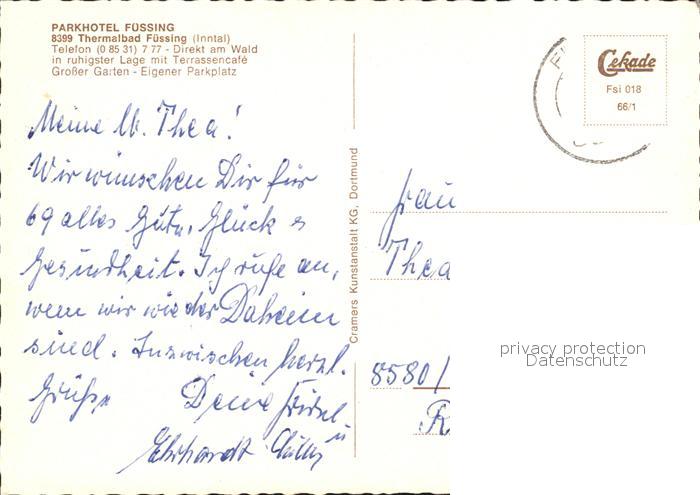 PARKHOTEL FÜSSING
8399 Thermalbad Füssing (Inntal)
Telefon (0 85 31) 7 77 - Direkt am Wald
in ruhigster Lage mit Terrassencafé
Großer Garten - Eigener Parkplatz
Meine lb. Thea!
Wir wünschen Dir für
69 alles Gute, Glück
Gesundheit. Ich rufe an,
wenn wir wieder Daheim
sind. Inzwischen herzl.
Grüße Deine
Ehrhardt
Cramers Kunstanstalt KG, Dortmund
Cekade
Fsi 018
66/1
Frau
Thea
8580/
R
privacy protection
Datenschutz